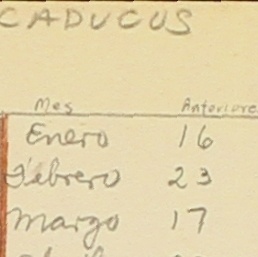 CADUCUS
Mes Anteriore
Enero 16
Febrero 23
Margo 17